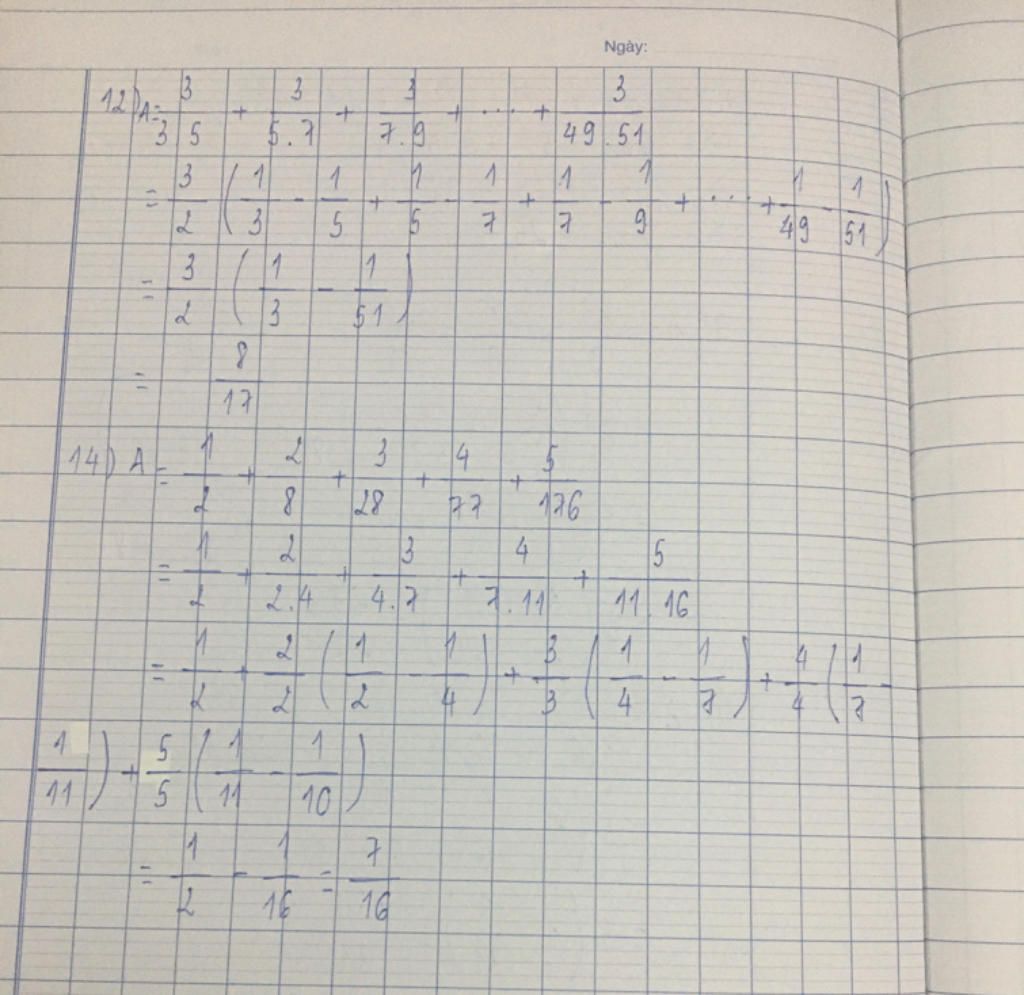 Ngày:
12) A = 3/3.5 + 3/5.7 + 3/7.9 + ... + 3/49.51
= 3/2 (1/3 - 1/5 + 1/5 - 1/7 + 1/7 - 1/9 + ... + 1/49 - 1/51)
= 3/2 (1/3 - 1/51)
= 8/17
14) A = 1/2 + 2/8 + 3/28 + 4/77 + 5/176
= 1/2 + 2/2.4 + 3/4.7 + 4/7.11 + 5/11.16
= 1/2 + 2/2 (1/2 - 1/4) + 3/3 (1/4 - 1/7) + 4/4 (1/7 -
1/11) + 5/5 (1/11 - 1/10)
= 1/2 - 1/16 = 7/16